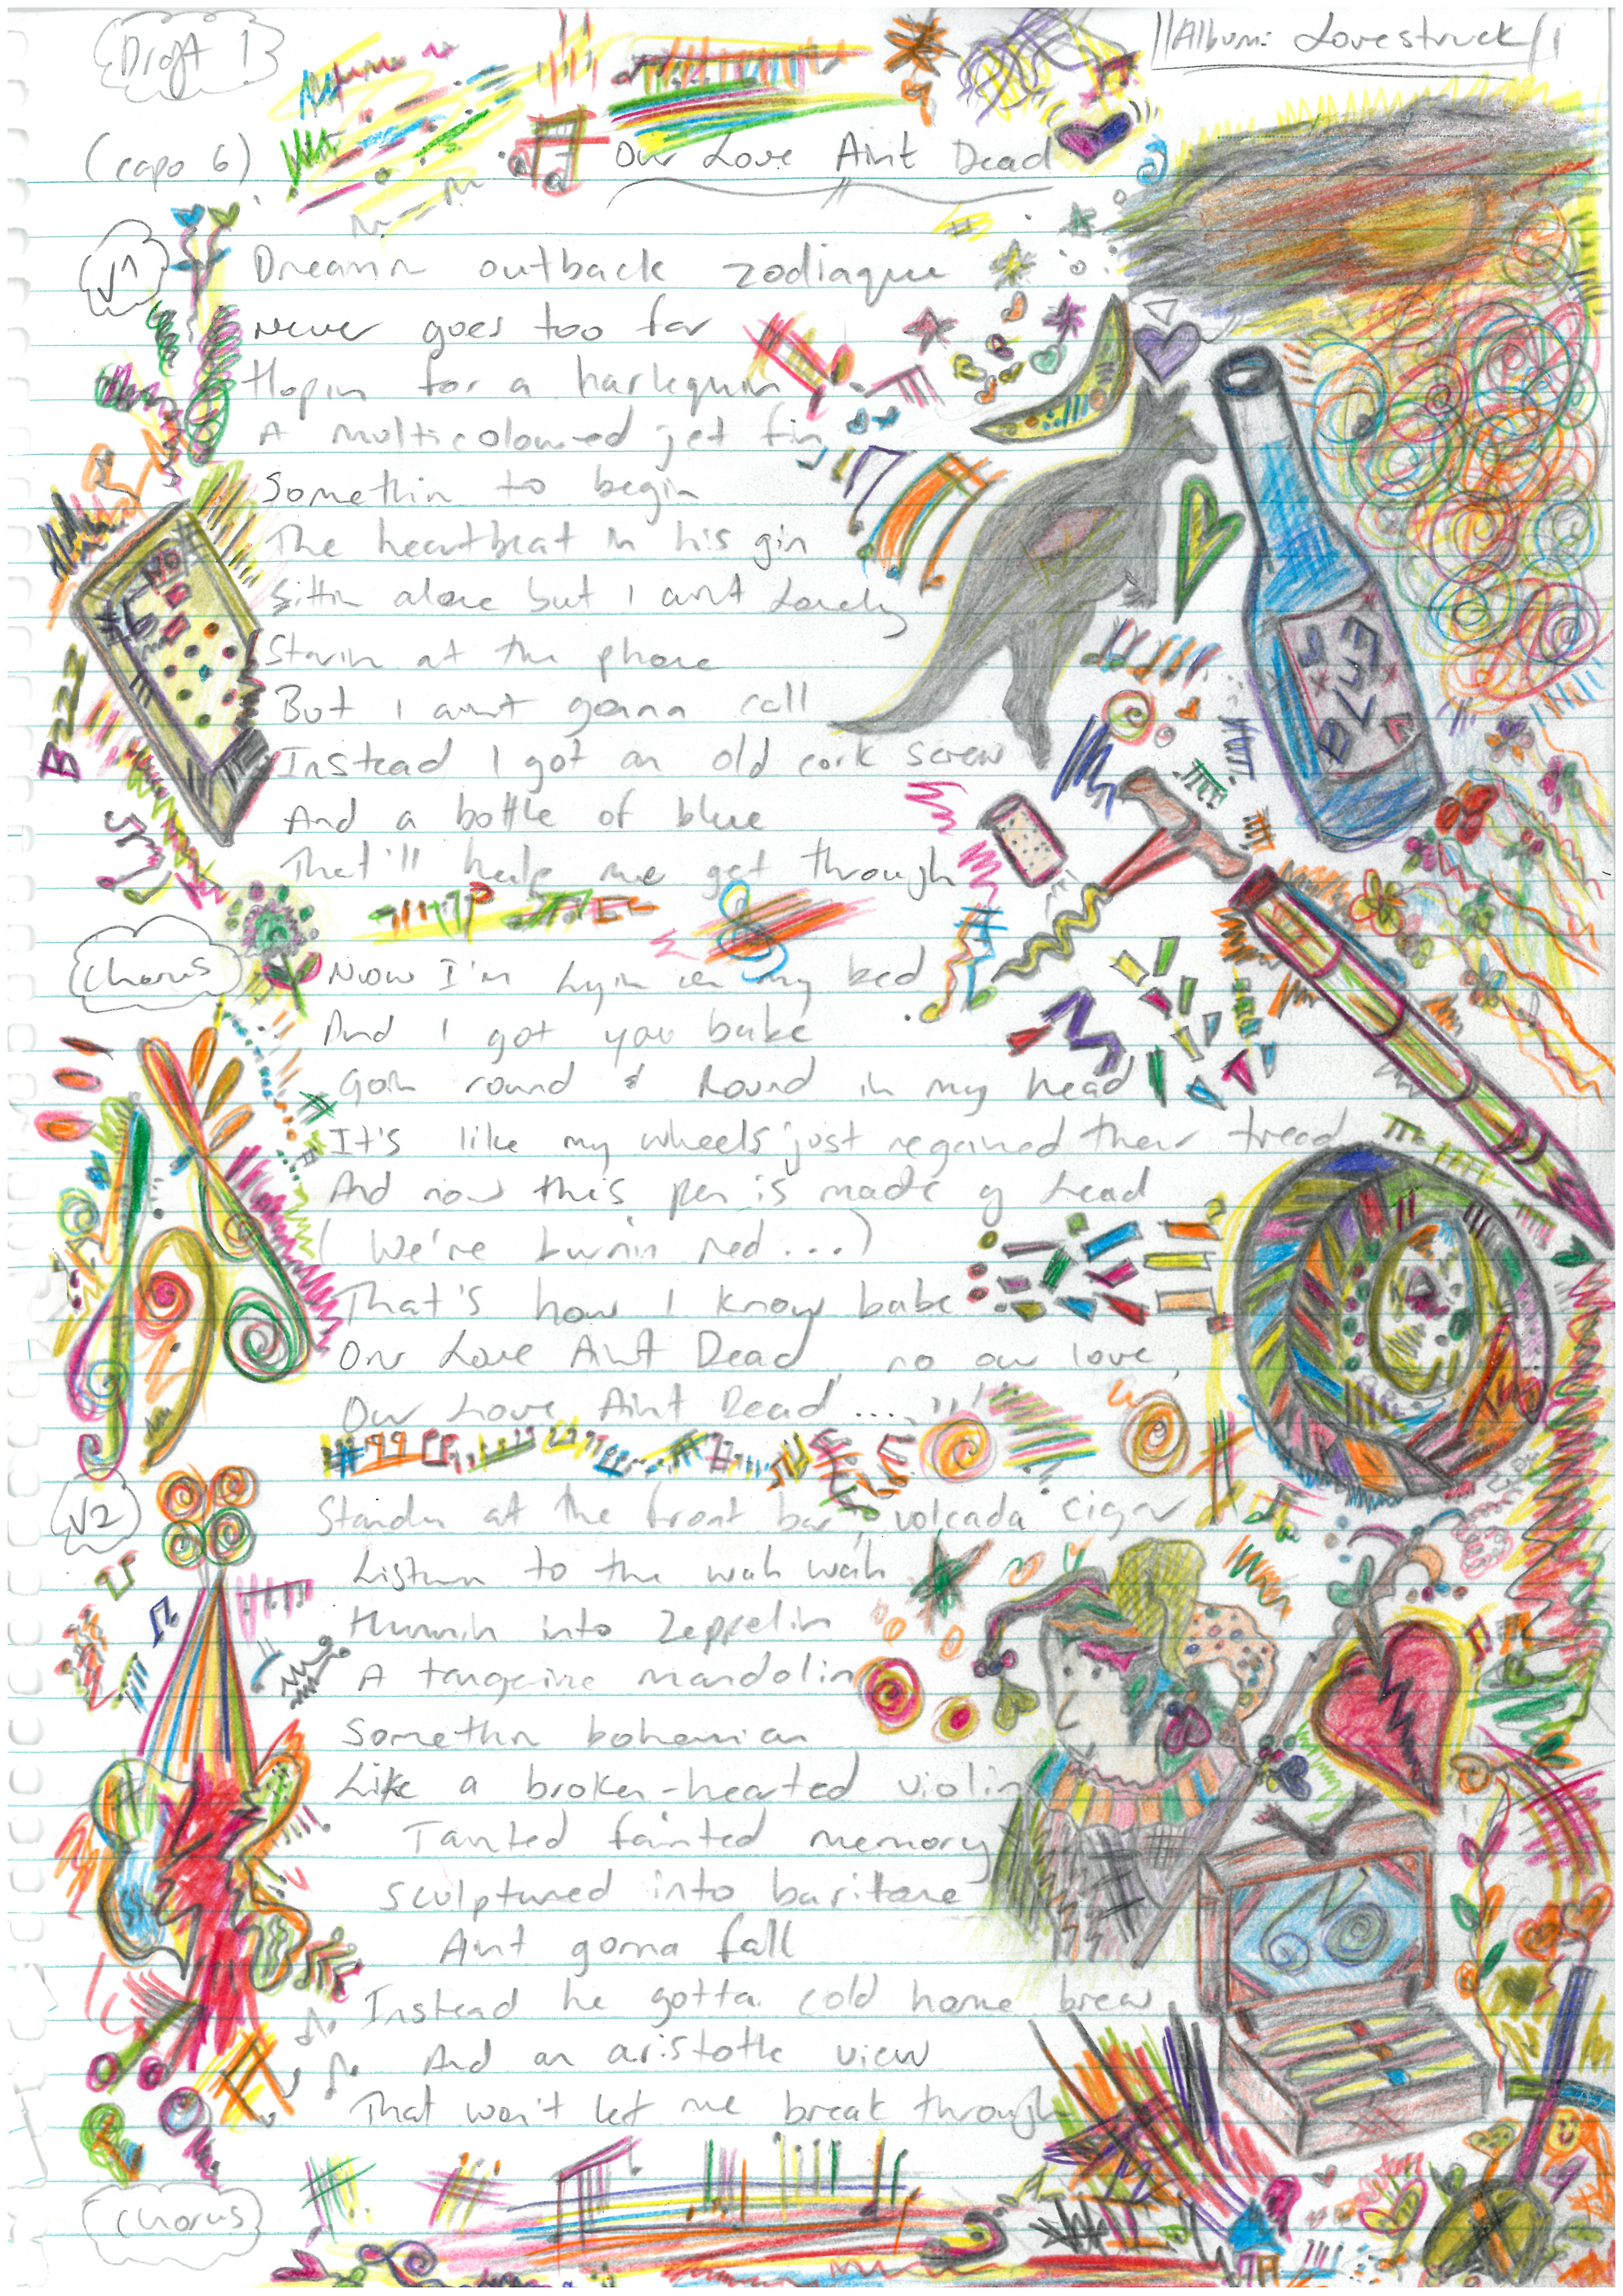 Draft 1
||Album: Lovestruck||
(capo 6)
Our Love Aint Dead
V1
Dreamin outback zodiaque
Never goes too far
Hopin for a harlequin
A multicoloured jet fin
Somethin to begin
The heartbeat in his gin
Sittin alone but I aint Lonely
Starin at the phone
But I aint gonna call
Instead I got an old cork screw
And a bottle of blue
That'll help me get through
Bzzz
BLUE
Chorus
Now I'm Lyin in my bed
And I got you babe
Goin round & Round in my head
It's like my wheels just regained their tread
And now this pen is made of Lead
(We're burnin red...)
That's how I know babe
Our Love Aint Dead, no our love,
Our Love Aint Dead ....
V2
Standin at the front bar, volcada cigar
Listenin to the wah wah
Hummin into Zeppelin
A tangerine mandolin
Somethin bohemian
Like a broken-hearted violin
Tainted fainted memory
Sculptured into baritone
Aint gonna fall
Instead he gotta cold home brew
And an aristotle view
That won't let me break through
Chorus